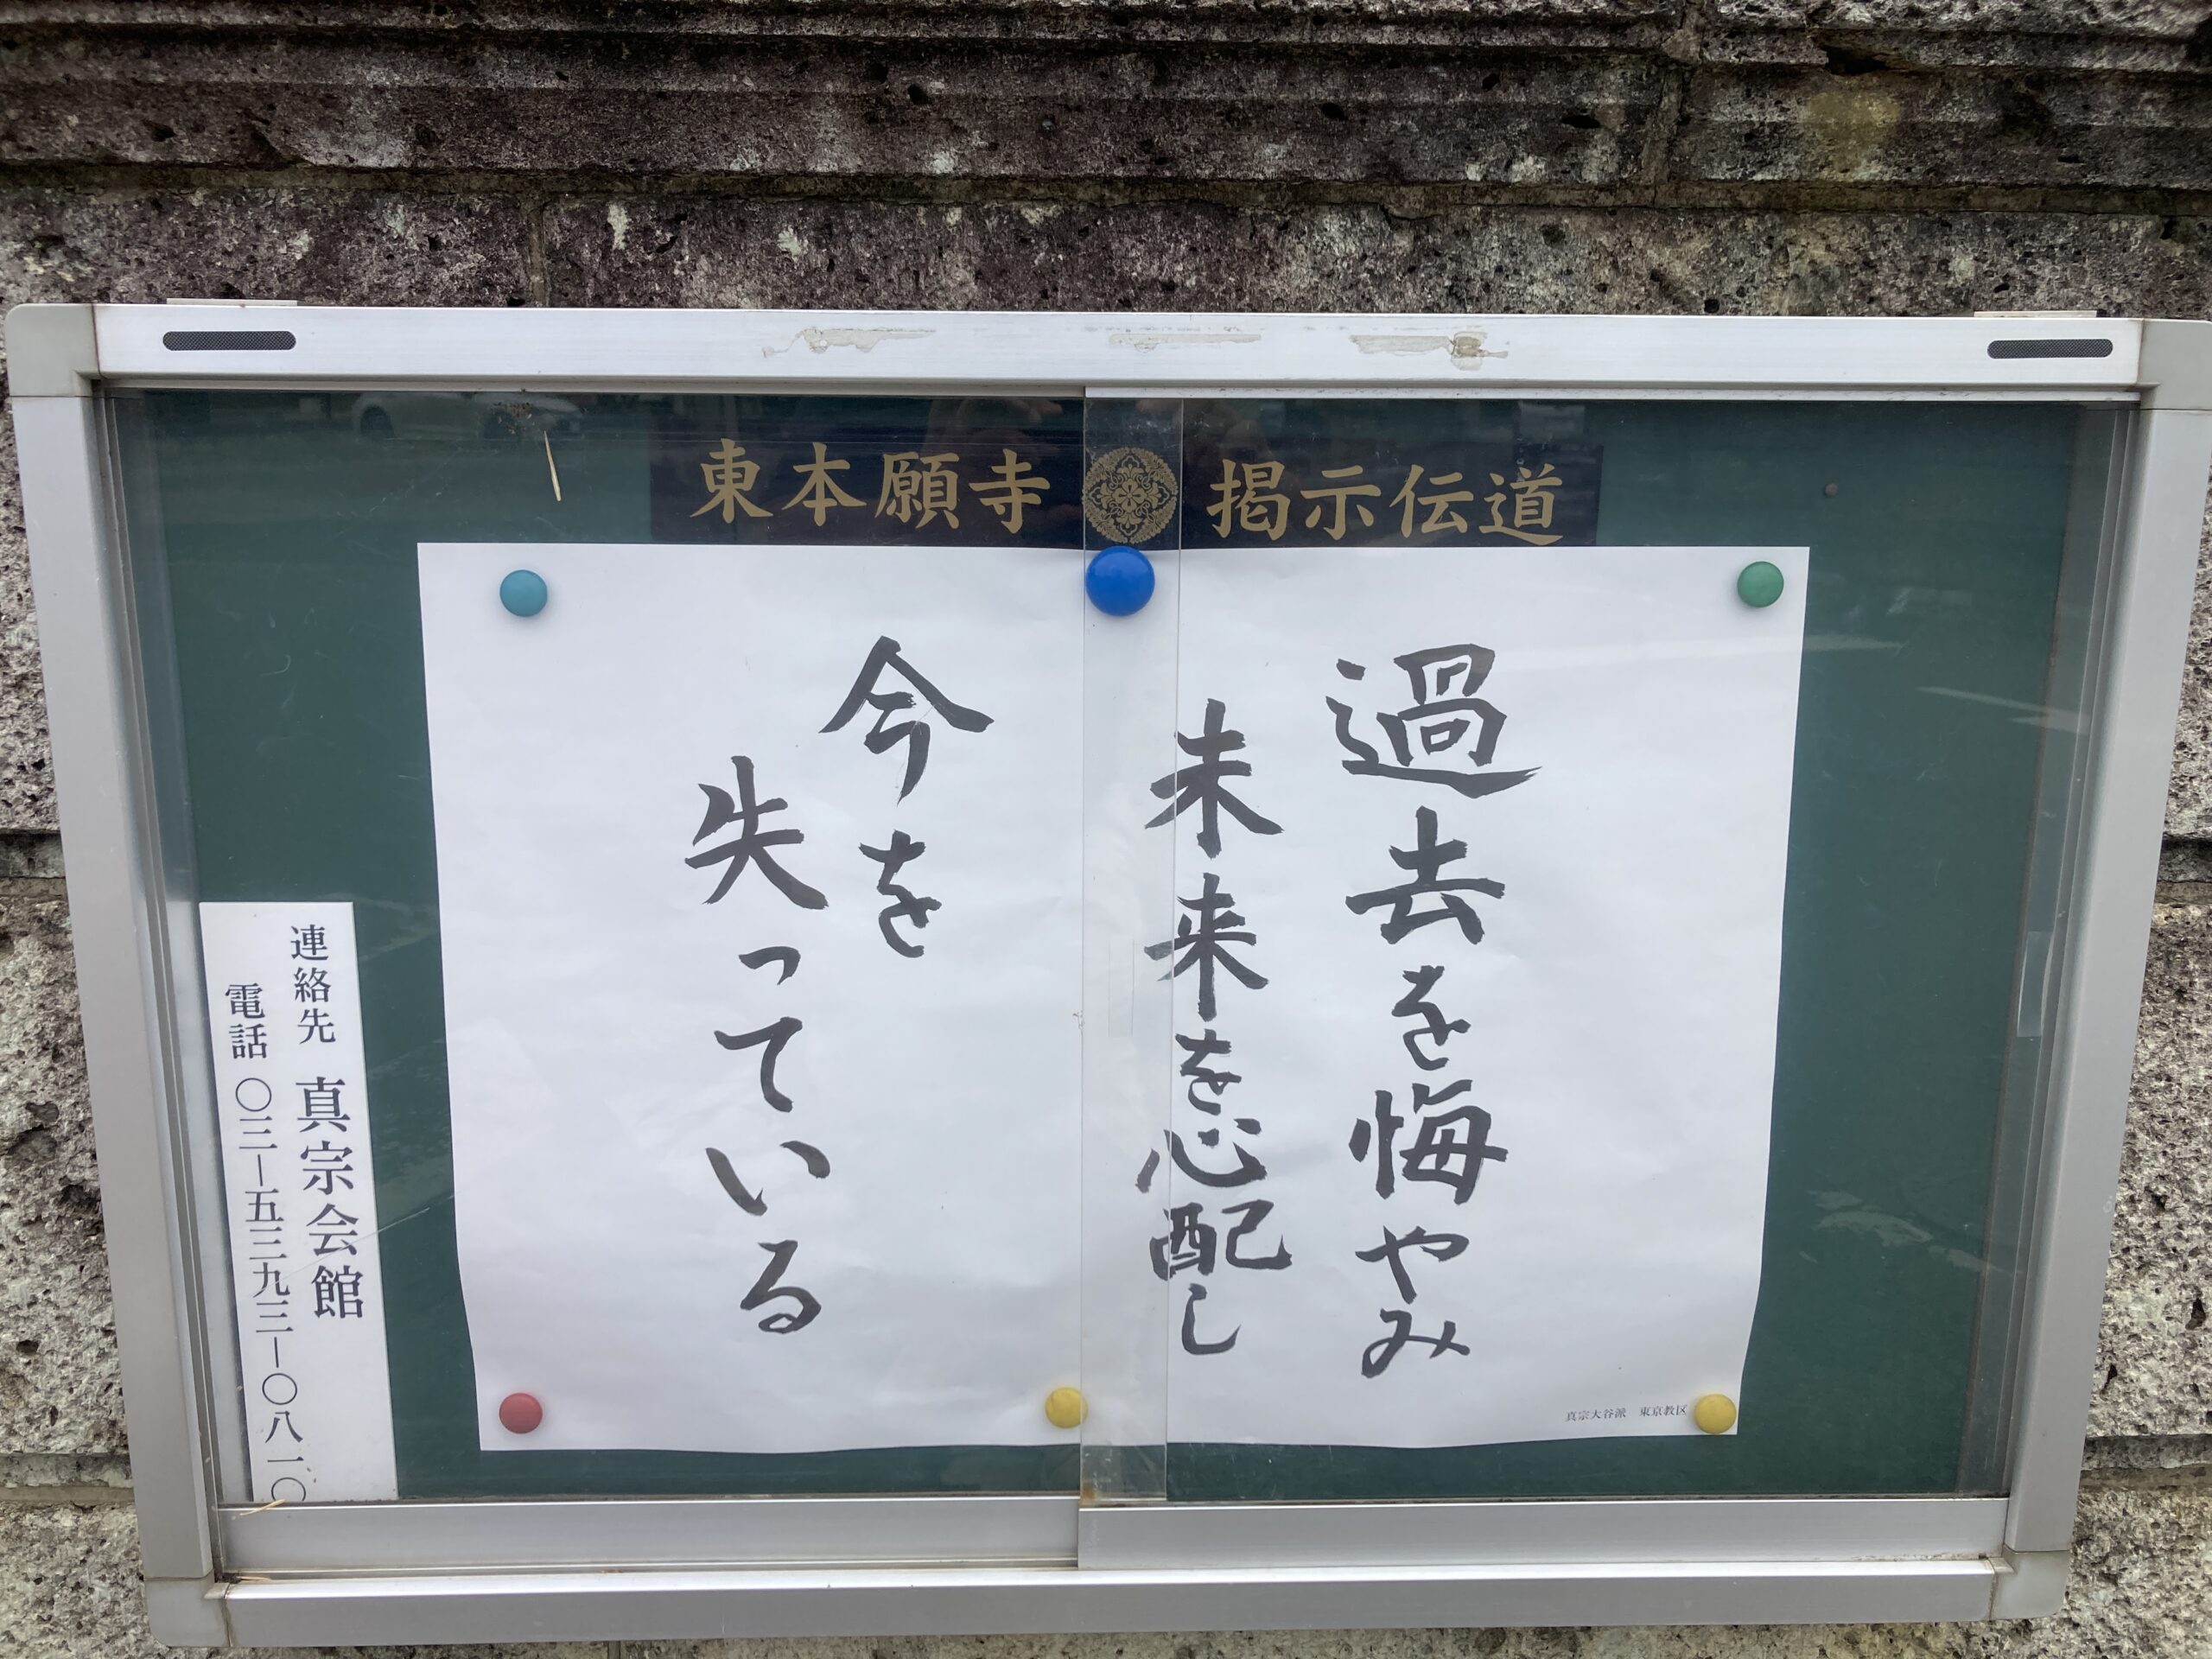 東本願寺 掲示伝道
過去を悔やみ
未来を心配し
今を
失っている
真宗大谷派 東京教区
連絡先 真宗会館
電話 〇三ー五三九三ー〇八一〇